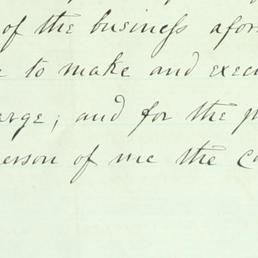 of the business afor
to make and execu
arge; and for the p
person of me the Co